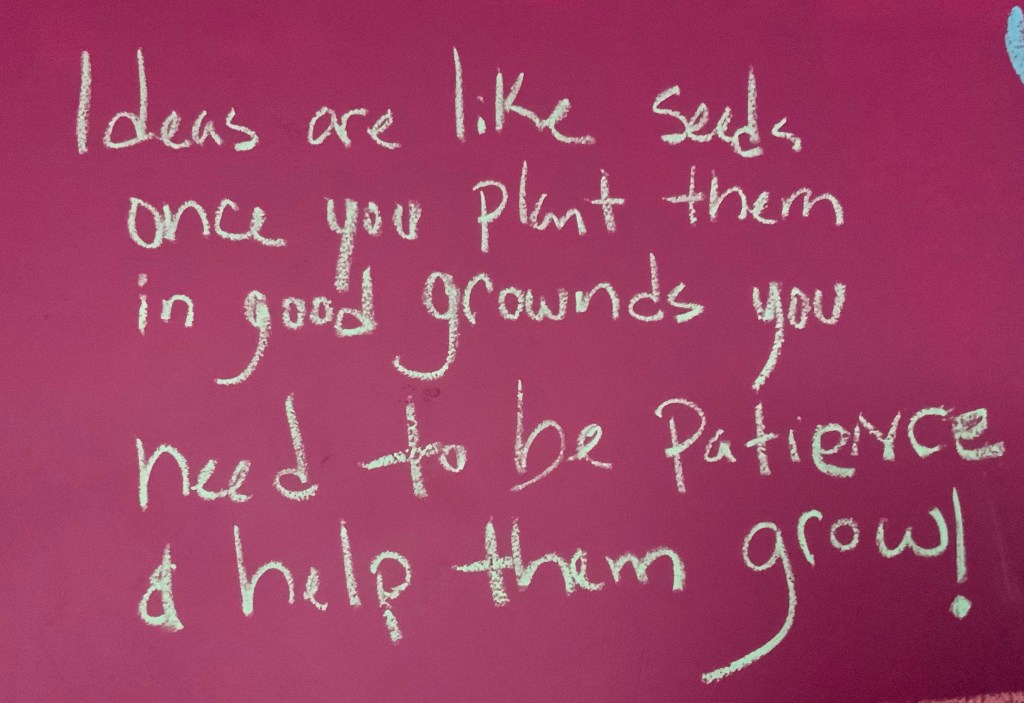 Ideas are like seeds
once you plant them
in good grownds you
need to be Patience
& help them grow!